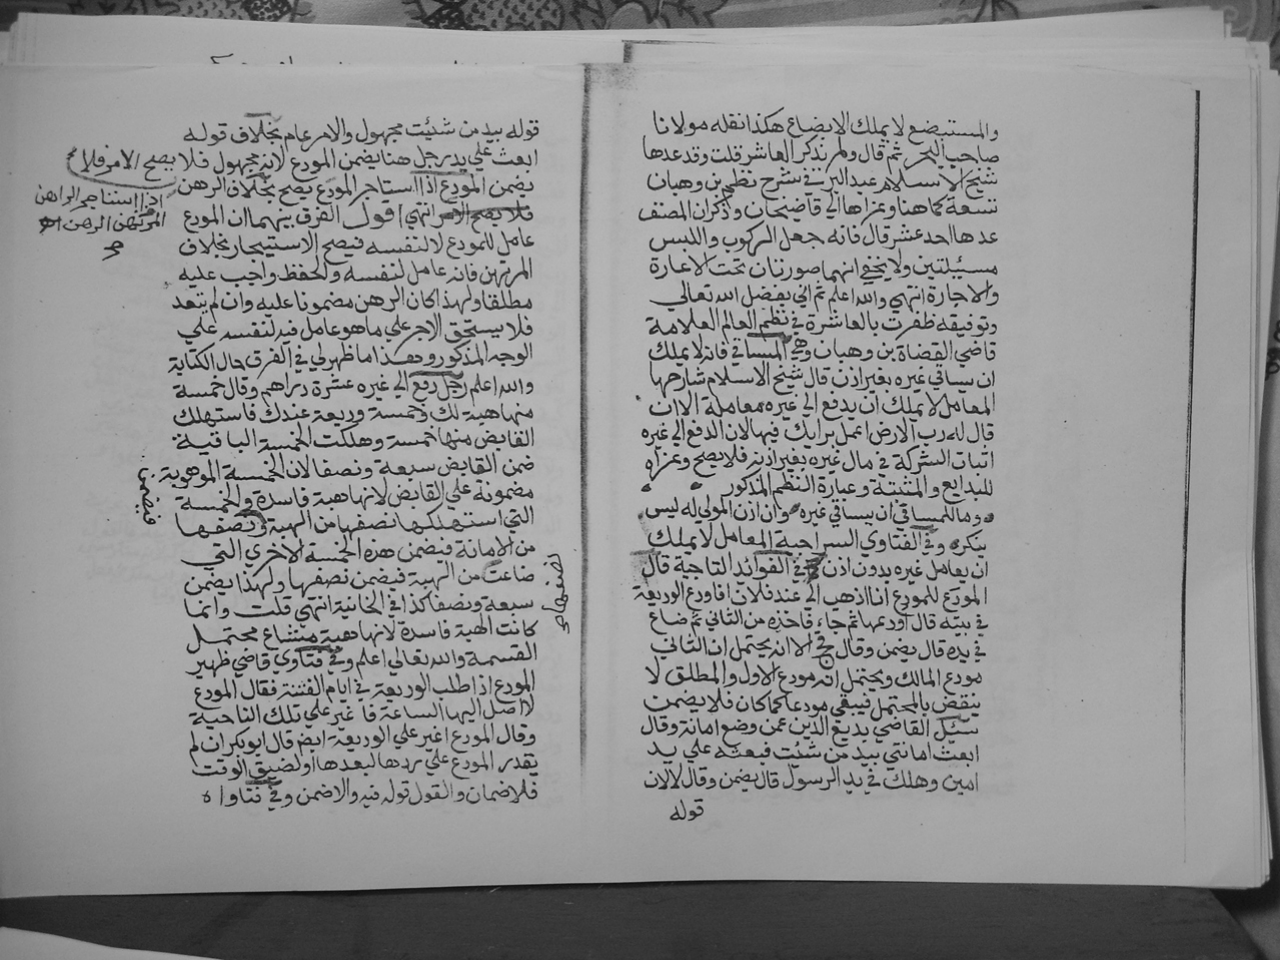 والمستبضع لا يملك الابضاع هكذا نقله مولانا
صاحب البحر ثم قال ولم يذكر العاشر قلت وقد عدها
شيخ الاسلام عبد البر في شرح نظم بن وهبان
تسعة كما هنا وعزاها الي قاضيخان وذكر ان المصنف
عدها احد عشر قال فانه جعل الركوب واللبس
مسيئلتين ولا يخفي انهما صورتان تحت الاعارة
والاجارة انتهي والله اعلم ثم اني بفضل الله تعالي
وتوفيقه ظفرت بالعاشرة في نظم العالم العلامة
قاضي القضاة بن وهبان وهي المساقي فانه لا يملك
ان يساقي غيره بغير اذن قال شيخ الاسلام شارحها
المعامل لا يملك ان يدفع الي غيره معاملة الا ان
قال له رب الارض اعمل برايك فيها لان الدفع الي غيره
اثبات الشركة في مال غيره بغير اذنه فلا يصح وعزاه
للبدايع و وعبارة النظم المذكور
وما للمساقي ان يساقي غيره وان اذن المولي له ليس
ينكر وفي الفتاوي السراجية المعامل لا يملك
ان يعامل غيره بدون اذن وفي الفوائد التاجية قال
المودع للمودع انا اذهب الي عند فلان افاودع الوديعة
في بيته قال اودعها ثم جاء فاخذه من الثاني ثم ضاع
في يده قال يضمن وقال الا انه يحتمل ان الثاني
مودع المالك ويحتمل انه مودع الاول والمطلق لا
ينقض بالمحتمل فيبقي مودعا كما كان فلا يضمن
سئيل القاضي بديع الدين عمن وضع امانة وقال
ابعث امانتي بيد من شئت فبعثه علي يد
امين وهلك في يد الرسول قال يضمن وقال لا لان
قوله
قوله بيد من شئت مجهول والامر عام بخلاف قوله
ابعث علي يد رجل هنا يضمن المودع لانه مجهول فلا يصح الامر فلا
يضمن المودع اذا استاجر المودع يصح بخلاف الرهن
فلا يصح الامر انتهي اقول الفرق بينهما ان المودع
عامل للمودع لا لنفسه فيصح الاستيجار بخلاف
المرتهن فانه عامل لنفسه والحفظ واجب عليه
مطلقا ولهذا كان الرهن مضمونا عليه وان لم يتعد
فلا يستحق الاجر علي ما هو عامل فيه لنفسه علي
الوجه المذكور وهذا ما ظهر لي في الفرق حال الكتابة
والله اعلم رجل دفع الي غيره عشرة دراهم وقال خمسة
منها هبة لك وخمسة وديعة عندك فاستهلك
القابض منها خمسة وهلكت الخمسة الباقية
ضمن القابض سبعة ونصفا لان الخمسة الموهوبة
مضمونة علي القابض لانها هبة فاسدة والخمسة
التي استهلكها نصفها من الهبة ونصفها
من الامانة فيضمن هذه الخمسة الاخري التي
ضاعت من الهبة فيضمن نصفها ولهذا يضمن
سبعة ونصفا كذا في الخانية انتهي قلت وانما
كانت الهبة فاسدة لانها هبة مشاع محتمل
القسمة والله تعالي اعلم وفي فتاوي قاضي ظهير
المودع اذا طلب الوديعة في ايام الفتنة فقال المودع
لا اصل اليها الساعة فاغير علي تلك الناحية
وقال المودع اغير علي الوديعة ايض قال ابو بكر ان لم
يقدر المودع علي ردها لبعدها او لضيق الوقت
فلا ضمان والقول قوله فيه والا ضمن وفي فتاواه
اذا استاجر الراهن
المرتهن الرهن
فيضمن
نصفها